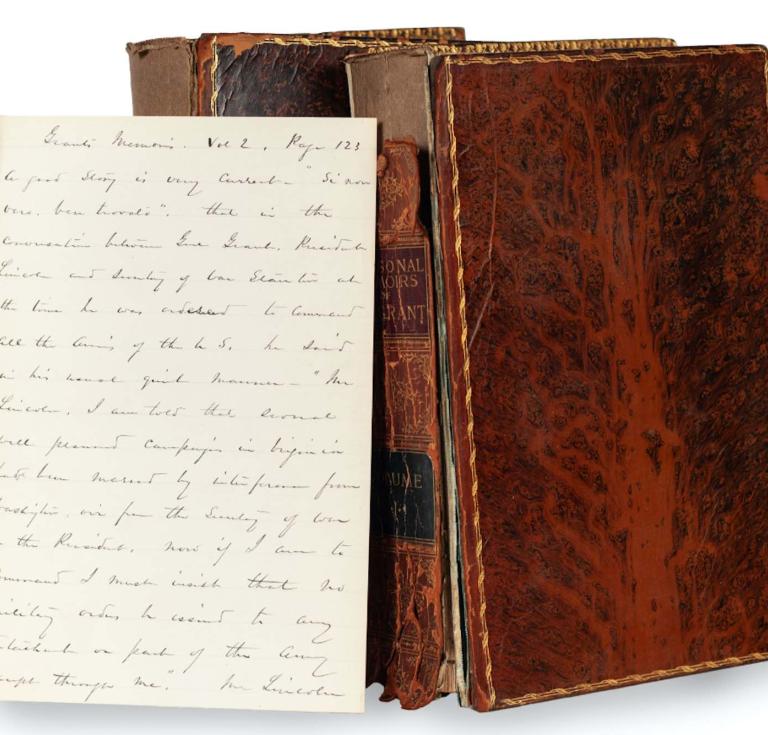 Grant's Memoirs. Vol 2, Page 123
A good story is very current - "Si non
vero, ben trovato". that is the
conversation between Gen Grant, President
Lincoln and Secretary of War Stanton at
the time he was ordered to command
all the Armies of the U S. he said
in his usual quiet manner - "Mr
Lincoln, I am told that several
well planned campaigns in Virginia
had been marred by interference from
Washington, even from the Secretary of War
or the President. now if I am to
command I must insist that no
military orders be issued to any
detachment or part of the Army
except through me." Mr Lincoln
SONAL
MOIRS
OF
GRANT
UME